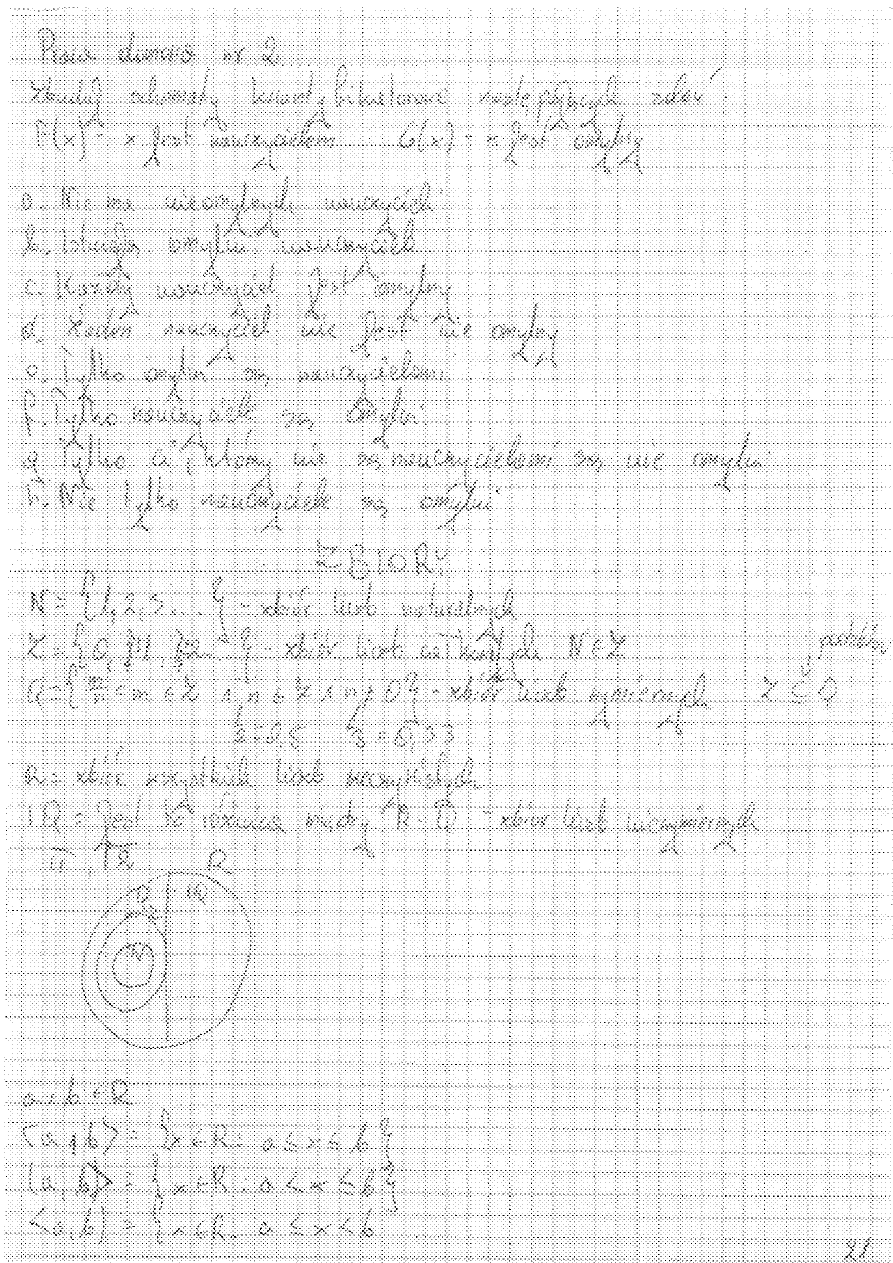 Praca domowa nr 2.
Zbuduj schematy kwantyfikatorowe następujących zdań
F(x) - x jest nauczycielem G(x) - x jest omylny
a. Nie ma nieomylnych nauczycieli
b. Istnieją omylni nauczyciele
c. Każdy nauczyciel jest omylny
d. Żaden nauczyciel nie jest nie omylny
e. Tylko omylni są nauczycielami
f. Tylko nauczyciele są omylni
g. Tylko ci, którzy nie są nauczycielami są nie omylni
h. Nie tylko nauczyciele są omylni
ZBIORY
N = {1, 2, 3 ... } - zbiór liczb naturalnych
Z = {0, ±1, ±2 ... } - zbiór liczb całkowitych N ⊂ Z
Q = { m/n : m ∈ Z ∧ n ∈ Z ∧ n ≠ 0 } - zbiór liczb wymiernych Z ⊆ Q
R = zbiór wszystkich liczb rzeczywistych
IQ = jest to różnica między R - Q - zbiór liczb niewymiernych
π, √2 R
Q IQ
Z
N
a, b ∈ R
<a, b> = {x ∈ R: a ≤ x ≤ b}
(a, b> = {x ∈ R: a < x ≤ b}
<a, b) = {x ∈ R: a ≤ x < b
21